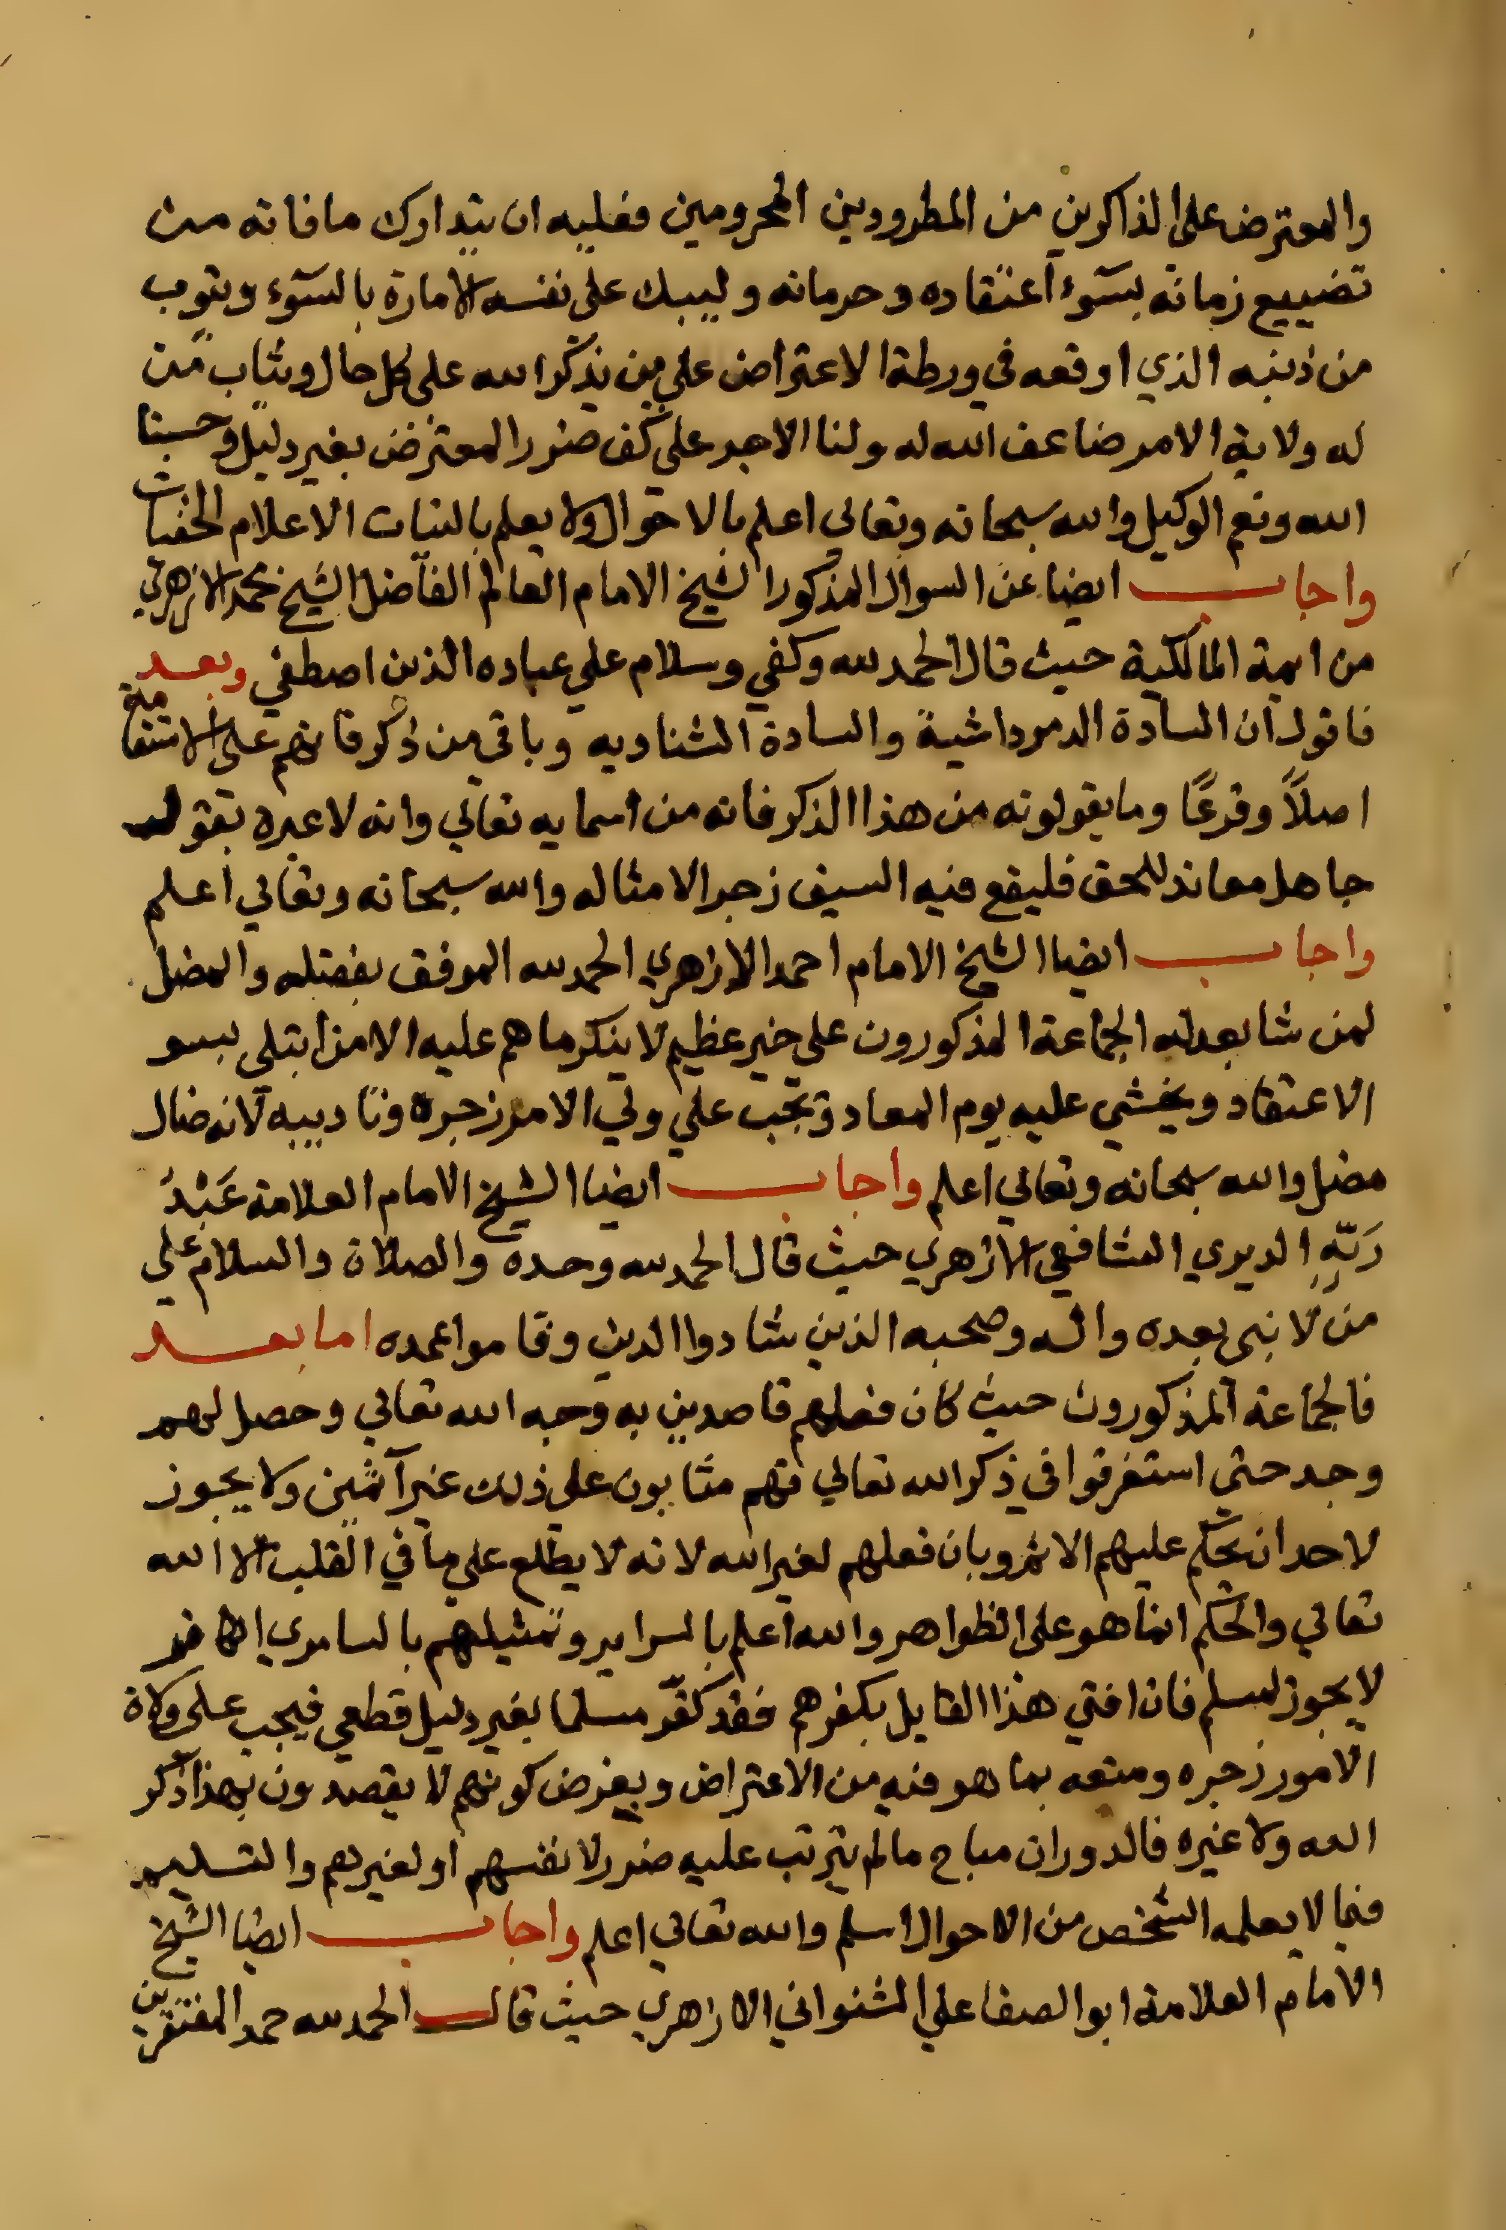 والمعترض على الذاكرين من المطرودين المحرومين فعليه ان يتدارك ما فاته من
تضييع زمانه بسوء اعتقاده وحرمانه وليبك على نفسه الامارة بالسوء ويتوب
من ذنبه الذي اوقعه في ورطة الاعتراض على من يذكر الله على كل حال ويثاب من
له ولاية الامر ضاعف الله له ولنا الاجر على كف ضرر المعترض بغير دليل وحسبنا
الله ونعم الوكيل والله سبحانه وتعالى اعلم بالاحوال ولا يعلم بالنيات الاعلام الخفيات
واجاب ايضا عن السوال المذكور الشيخ الامام العالم الفاضل الشيخ محمد الازهري
من ايمة المالكية حيث قال الحمد لله وكفي وسلام علي عباده الذين اصطفي وبعد
فاقول ان السادة الدمرداشية والسادة الشناويه وباقي من ذكر فانهم على الاستقامة
اصلاً وفرعًا وما يقولونه من هذا الذكر فانه من اسمايه تعالي وانه لا عبره بقول
جاهل معاند للحق فليقع فيه السيف زجرا لامثاله والله سبحانه وتعالي اعلم
واجاب ايضا الشيخ الامام احمد الازهري الحمد لله الموفق بفضله والمضل
لمن شا بعدله الجماعة المذكورون على خير عظيم لا ينكر ما هم عليه الا من ابتلى بسو
الاعتقاد ويخشي عليه يوم المعاد ويجب علي ولي الامر زجره وتاديبه لانه ضال
مضل والله سبحانه وتعالي اعلم واجاب ايضا الشيخ الامام العلامة عَبْدُ
رَبِّهِ الديري الشافعي الازهري حيث قال الحمد لله وحده والصلاة والسلام علي
من لا نبي بعده واله وصحبه الذين شادوا الدين وقاموا عمده اما بعد
فالجماعة المذكورون حيث كان فعلهم قاصدين به وجه الله تعالي وحصل لهم
وجد حتي استغرقوا في ذكر الله تعالي فهم مثابون على ذلك غير آثمين ولا يجوز
لاحد ان يحكم عليهم الاثم وبان فعلهم لغير الله لانه لا يطلع علي ما في القلب الا الله
تعالي والحكم انما هو على الظواهر والله اعلم بالسراير وتمثيلهم بالسامري الكافر
لا يجوز لمسلم فان افتي هذا القايل بكفرهم فقد كفّر مسلما بغير دليل قطعي فيجب على ولاة
الامور زجره ومنعه بما هو فيه من الاعتراض وبفرض كونهم لا يقصدون بهذا ذكر
الله ولا غيره فالدوران مباح ما لم يترتب عليه ضرر لانفسهم او لغيرهم والتسليم
فيما لا يعلمه الشخص من الاحوال اسلم والله تعالي اعلم واجاب ايضا الشيخ
الامام العلامة ابو الصفا علي الشنواني الازهري حيث قال الحمد لله حمد المفتقرين